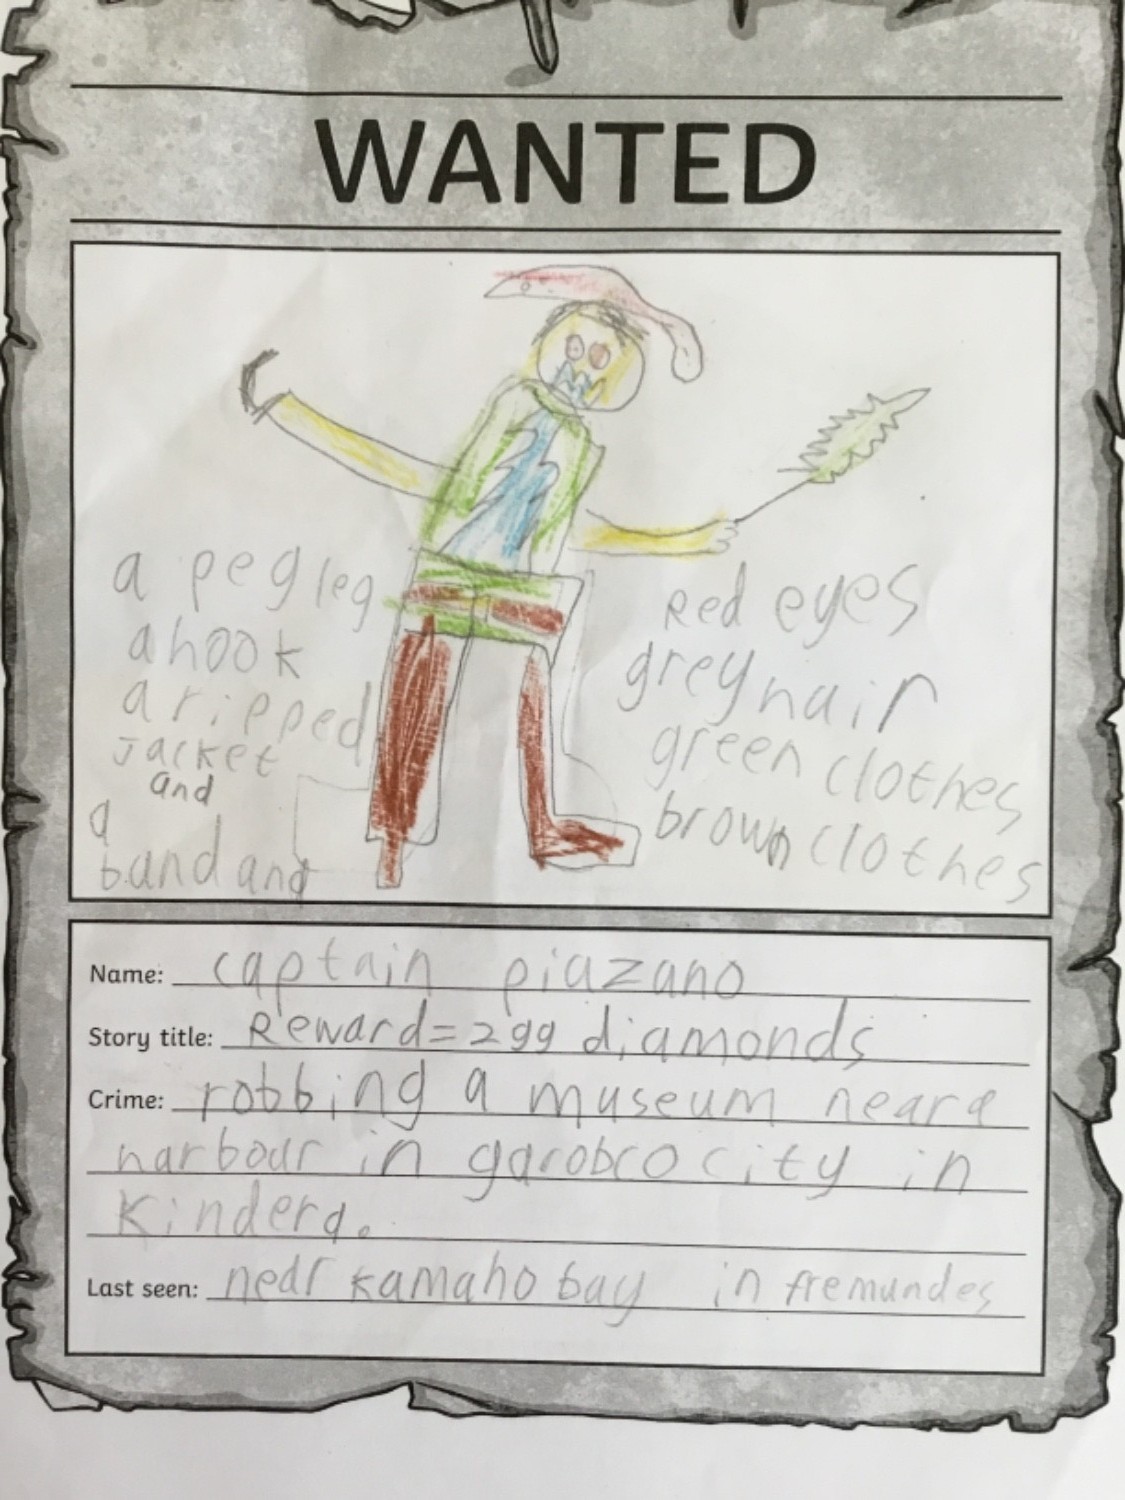 WANTED
a peg leg
a hook
a ripped
jacket
and
a
bandana
Red eyes
grey hair
green clothes
brown clothes
Name: captain piazano
Story title: Reward=299 diamonds
Crime: robbing a museum near a
harbour in garobro city in
Kindera.
Last seen: near kamaho bay in fremundes